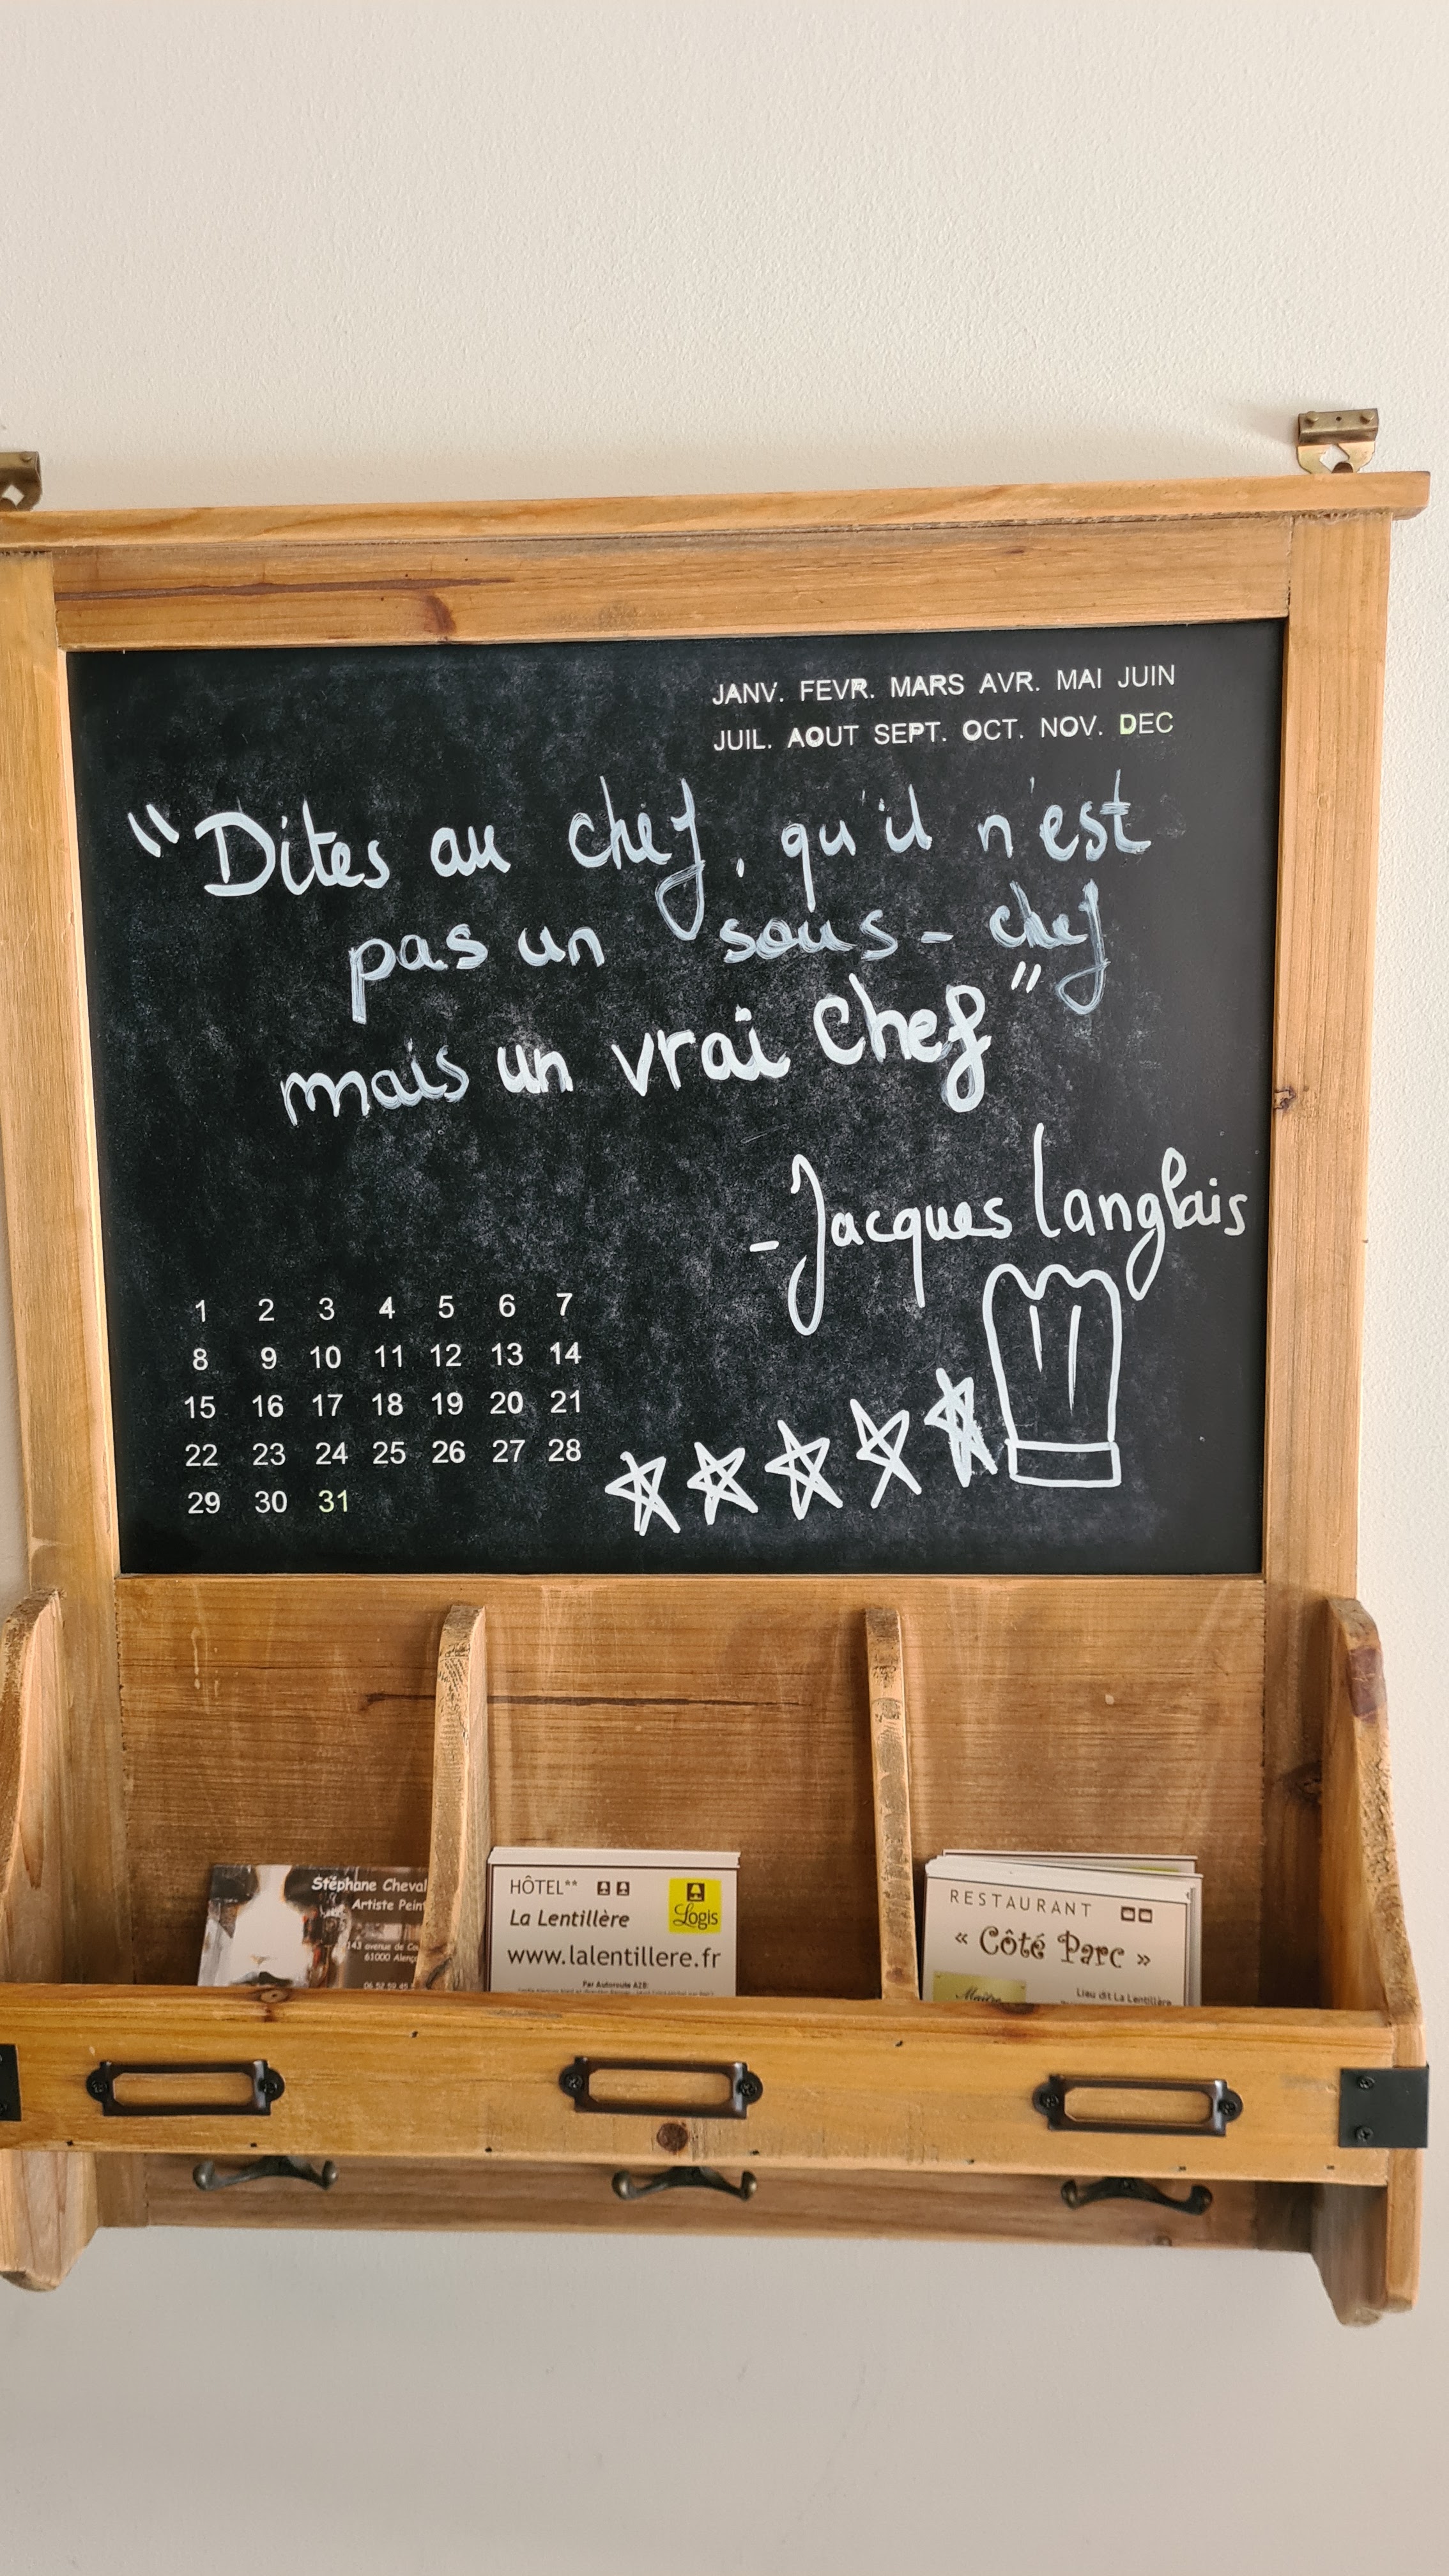 JANV. FEVR. MARS AVR. MAI JUIN
JUIL. AOUT SEPT. OCT. NOV. DEC
"Dites au chef, qu'il n'est
pas un sous-chef
mais un vrai chef"
- Jacques Langlais
1 2 3 4 5 6 7
8 9 10 11 12 13 14
15 16 17 18 19 20 21
22 23 24 25 26 27 28
29 30 31
Stéphane Cheval
Artiste Pein
143 avenue de
61000 Alenç
HÔTEL**
La Lentillère
Logis
www.lalentillere.fr
Par Autoroute A28:
RESTAURANT
« Côté Parc »
Maître
Lieu dit La Lentillère